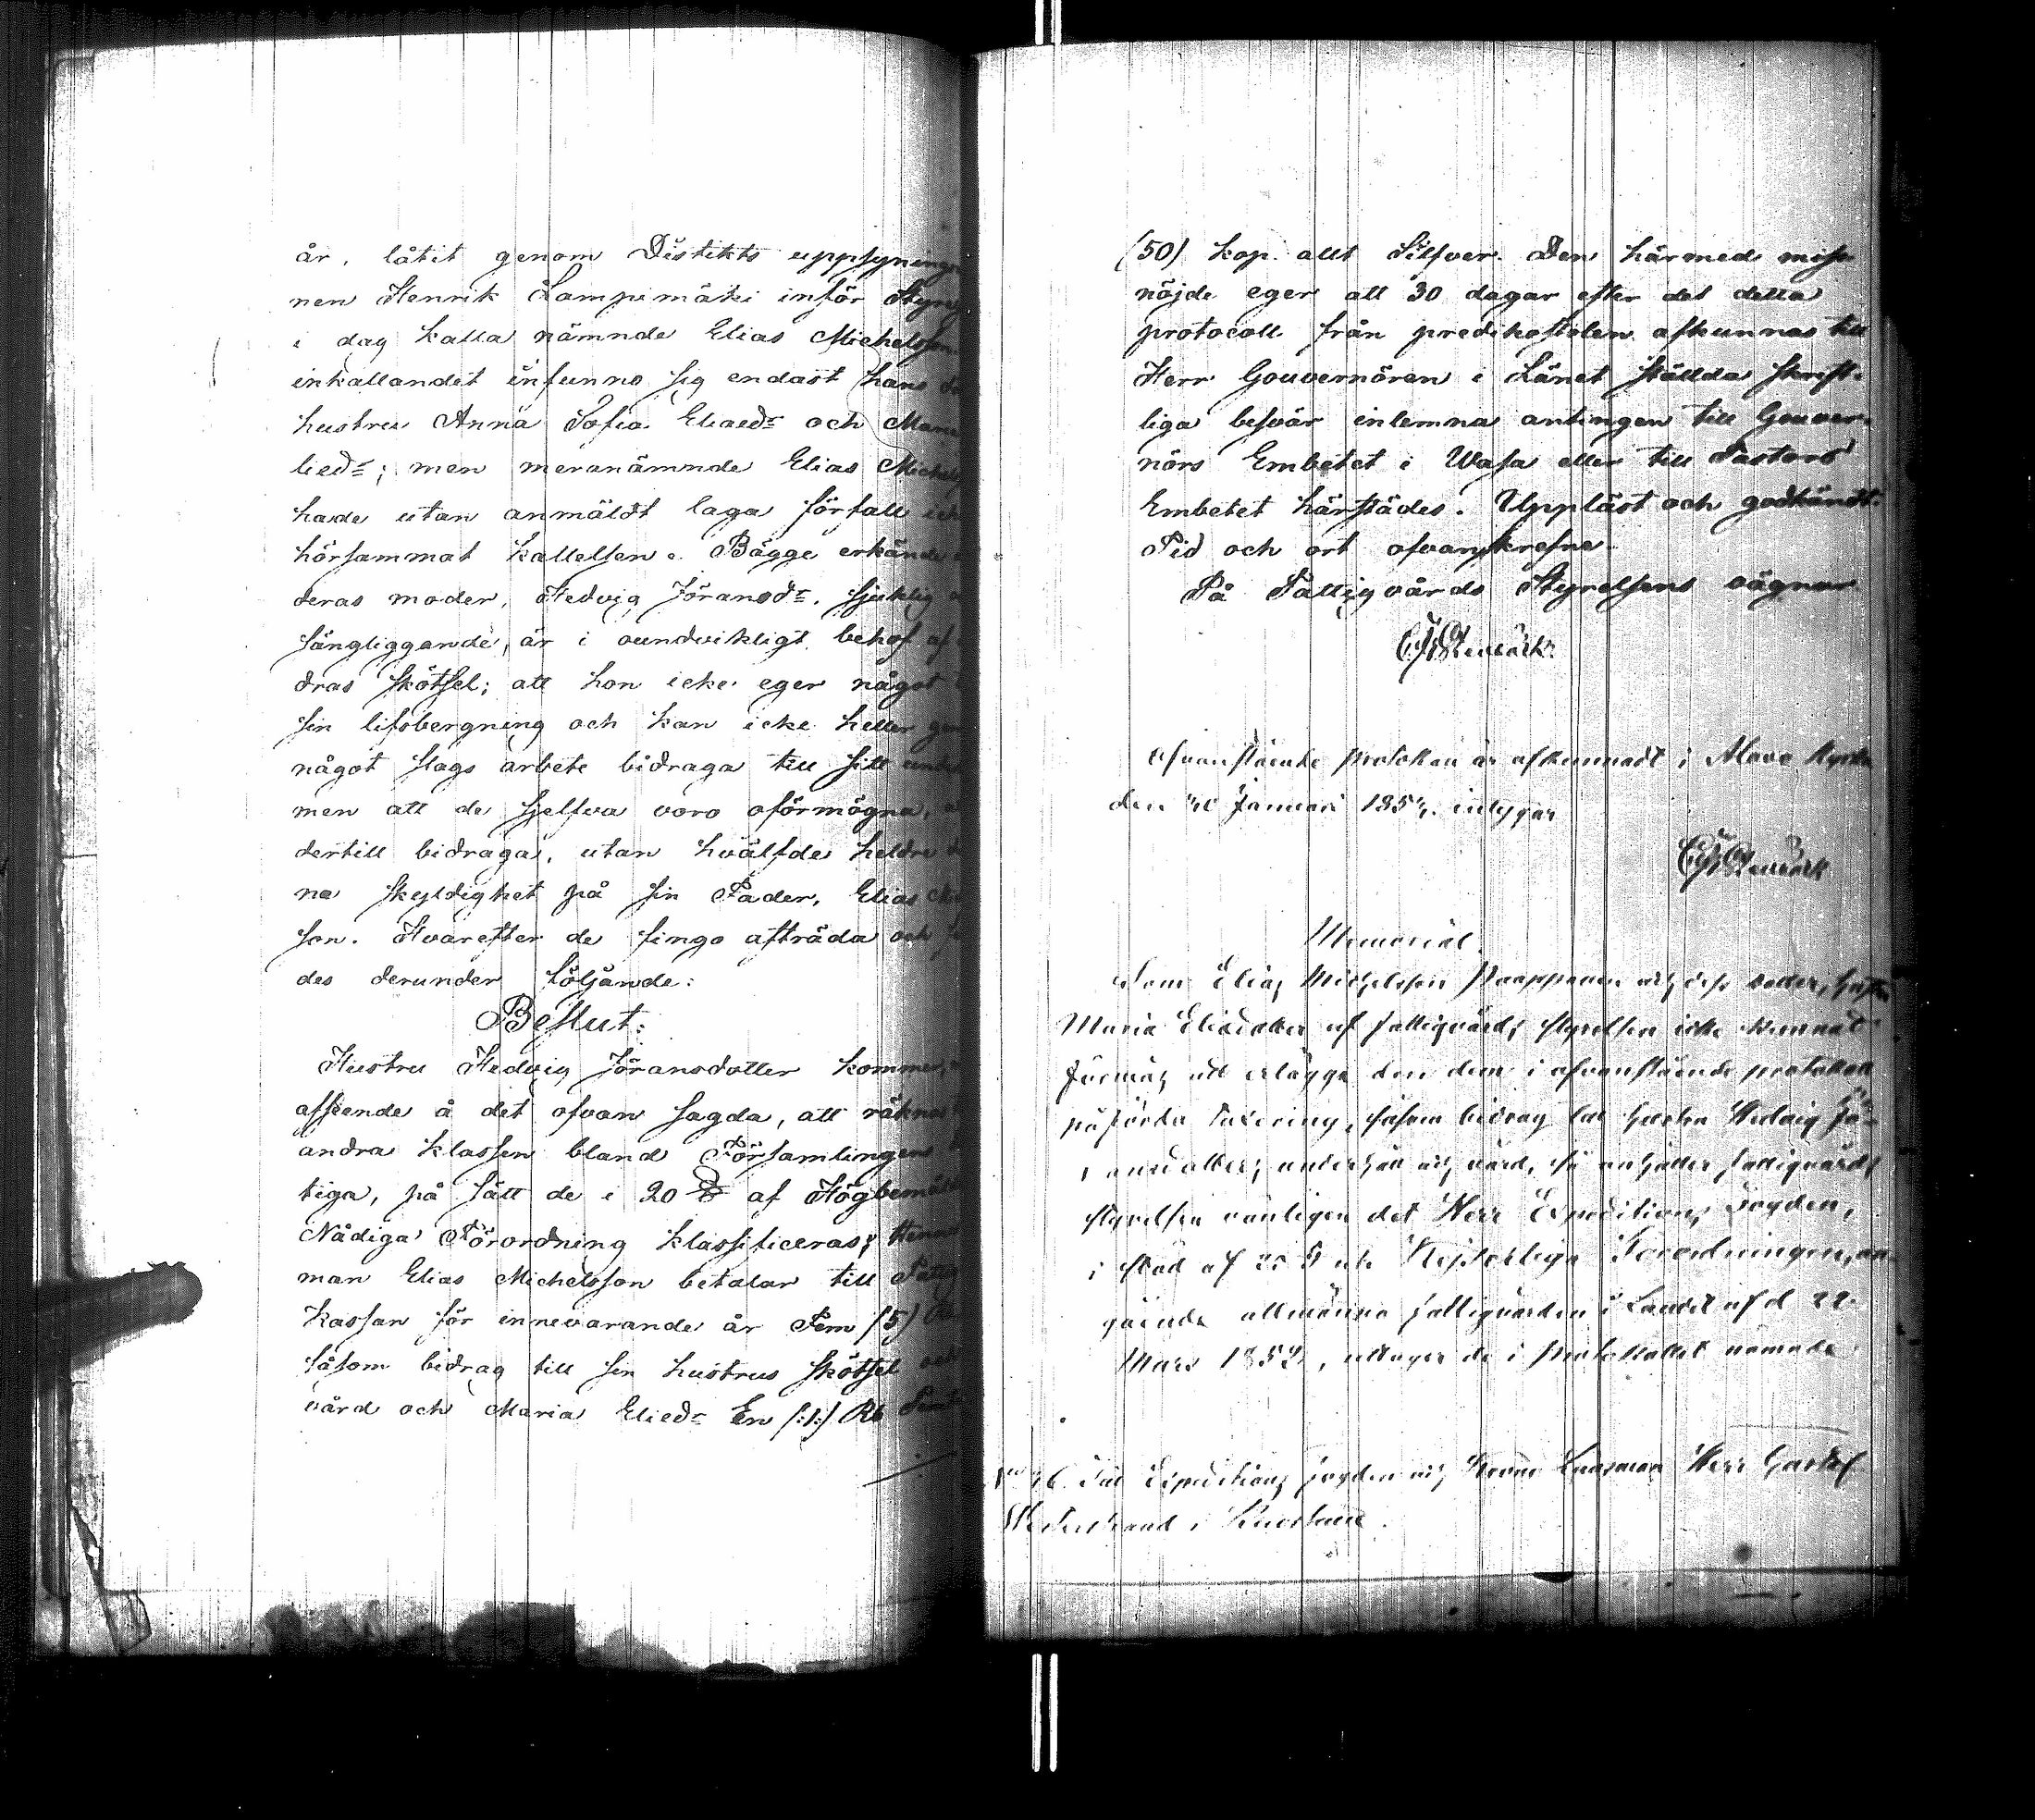 år, låtit genom Distikts uppsynings
nen Henrik Lampimäki inför Styre
i dag kalla nämnde Elias Michelsson
inkallandet infunno sig endast hans
hustru Anna Sofia Eliaedr och
liedr; men meranämnde Elias Michels
hade utan anmäldt laga förfall
hörsammat kallelsen. Bägge erkände
deras moder, Hedvig Jöransdr, sjuklig
sängliggande, är i oundvikligt behof af
dras skötsel; att hon icke eger något
sin lifsbergning och kan icke heller
något slags arbete bidraga till sitt
men att de sjelfva voro oförmögna,
dertill bidraga, utan hvälfde heldre
na skyldighet på sin Fader, Elias
son. Hvarefter de fingo afträda och
des derunder följande:
Beslut:
Hustru Hedvig Jöransdotter kommer,
afseende å det ofvan sagda, att räknas
andra klassen bland Församlingens
tiga, på sätt de i 20 § af Högbemälde
Nådiga Förordning klassificeras; Hennes
man Elias Michelsson betalar till
kassan för innevarande år Fem (5)
såsom bidrag till sin hustrus skötsel och
vård och Maria Eliedr En (:1:) Rb
(50) kop. allt Silfver. Den härmed miss
nöjde eger att 30 dagar efter det detta
protocoll från predikostolen afkunnas till
Herr Gouvernören i Länet ställda skrift-
liga besvär inlemna antingen till Gouver-
nörs Embetet i Wasa eller till Pastors
Embetet härstädes. Uppläst och godkändt.
Tid och ort ofvanskrefne.
På Fattigvårds Styrelsens vägnar
Ofvanstående protokoll är afkunnadt i Alavo kyrka
den Januari intygar
Memorial.
Som Elias Michelsson och dess dotter, hustru
Maria Eliedotter af fattigvårds styrelsen icke kunnat
förmås att erlägga den dem i ofvanstående protokoll
påförda taxering, såsom bidrag till hustru Hedvig Jö-
ransdotters underhåll och vård, så anhåller fattigvårds
styrelsen vänligen det Herr Expeditions Fogden,
i stöd af § uti Kejserliga Förordningen, an-
gående allmänna fattigvården i Landet af d. 22
Mars 1852, uttager de i protokollet nämnde
Till Expeditions fogden och Krono Länsman Herr Gustaf
i